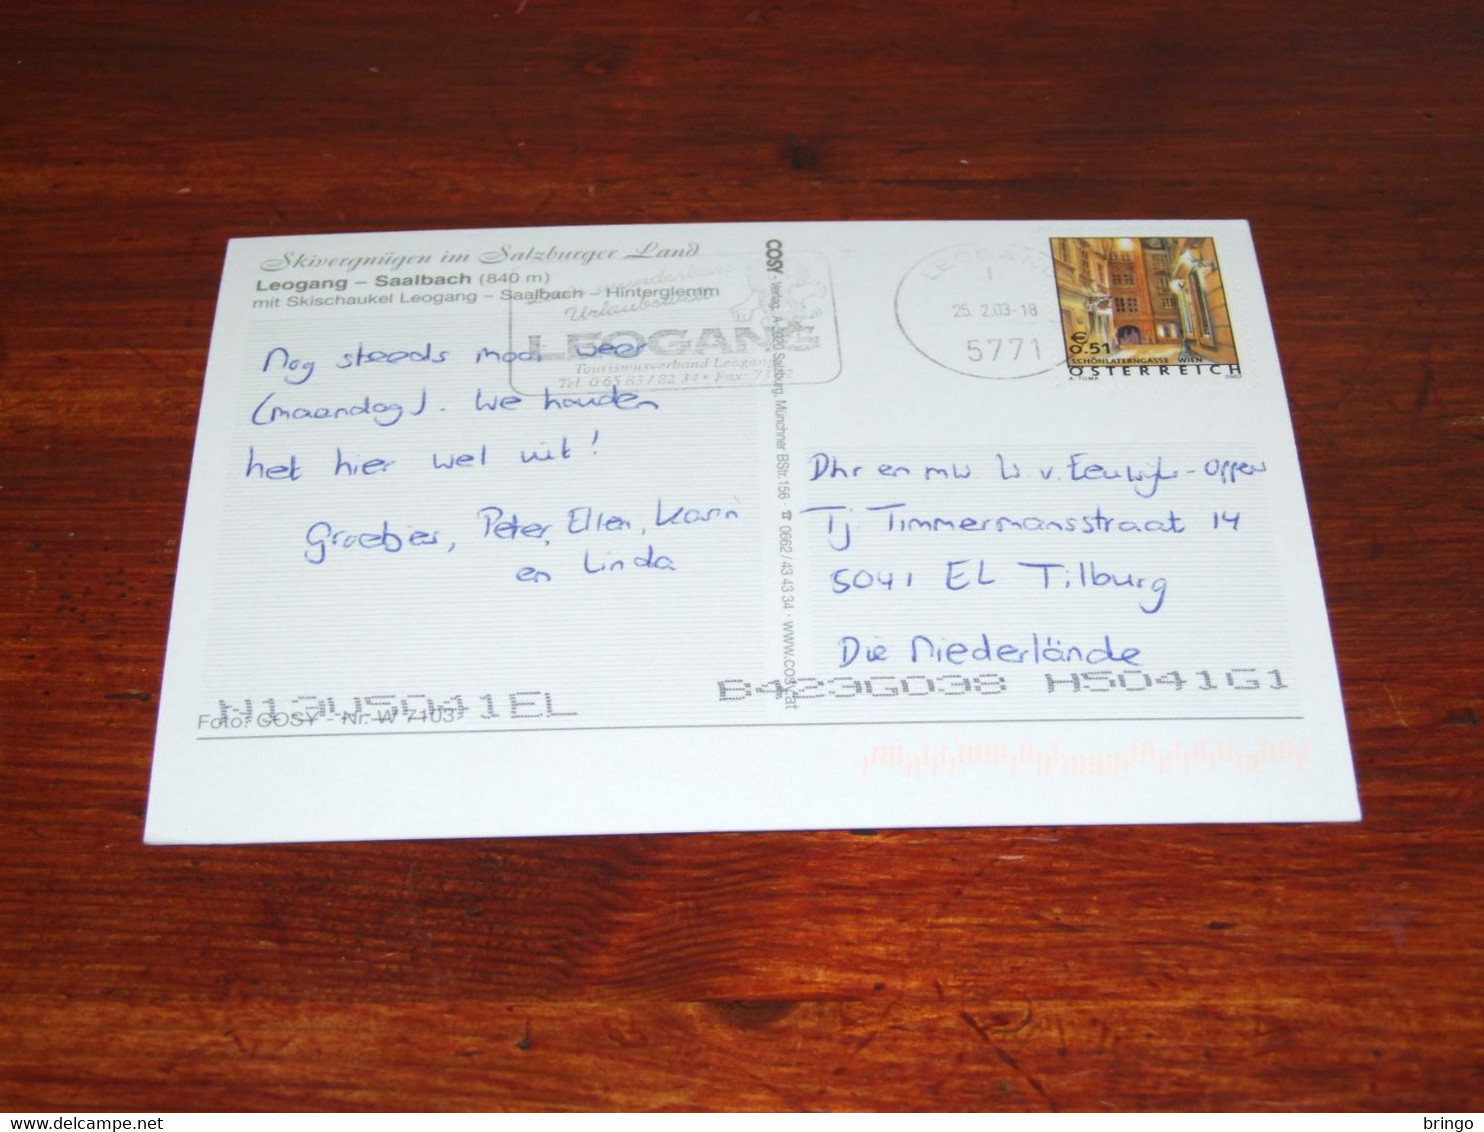 Skivergnügen im Salzburger Land
Leogang – Saalbach (840 m)
mit Skischaukel Leogang – Saalbach – Hinterglemm
Urlaubs
LEOGANG
Tourismusverband Leogang
Tel. 0 65 83 / 82 34 • Fax
Nog steeds mooi weer
(maandag). We houden
het hier wel uit!
Groetjes, Peter, Ellen, Karin
en Linda
N13W5041EL
Foto: COSY - Nr. W 7103
COSY - Verlag, A-5020 Salzburg, Münchner BStr. 156 · ☎ 0662 / 43 43 34 · www.cosy.at
LEOGANG
1
25. 2.03-18
5771
€ 0.51
SCHÖNLATERNGASSE WIEN
ÖSTERREICH
A. TUMA 2002
Dhr en mw. W. v. Eeuwijk-Oppers
Tj Timmermansstraat 14
5041 EL Tilburg
Die Niederlände
B423G038 H5041G1
bringo